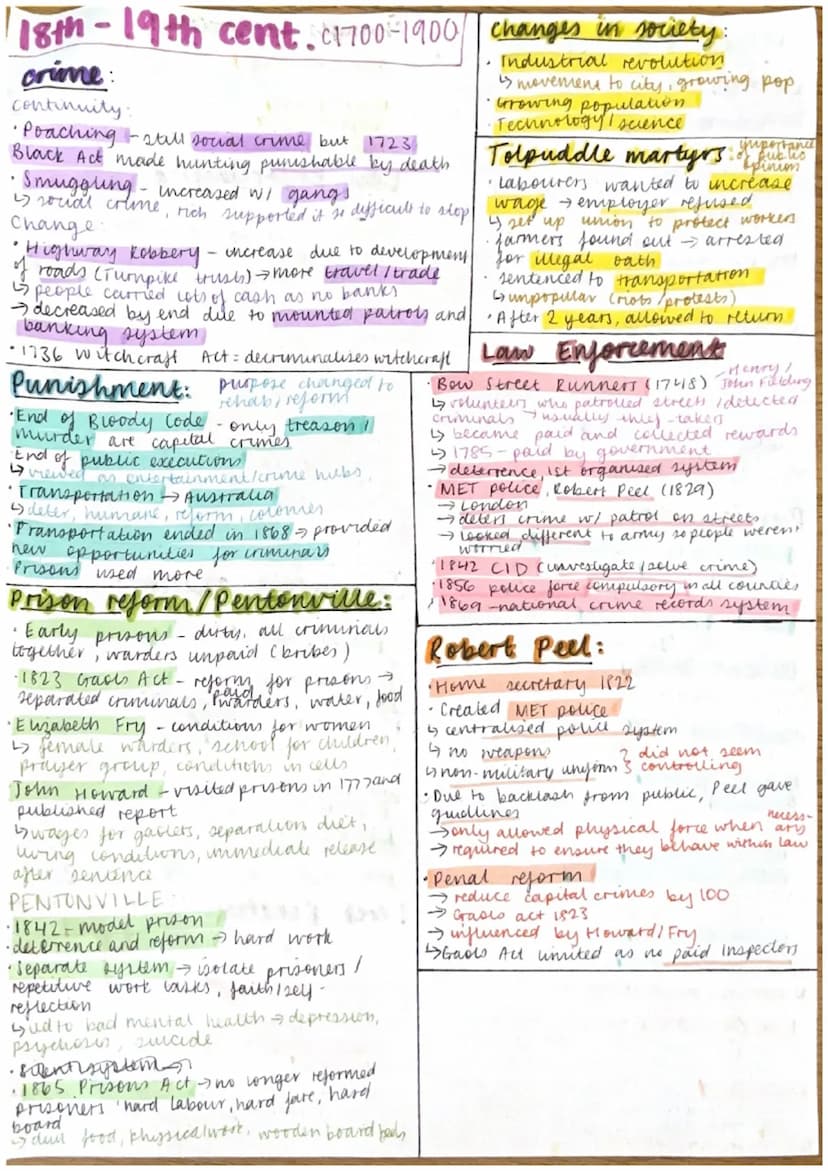 18th - 19th cent. c1700-1900
crime:
continuity:
· Poaching - still social crime but 1723
Black Act made hunting punishable by death
· Smuggling - increased w/ gangs
↳ social crime, rich supported it so difficult to stop
Change:
· Highway Robbery - increase due to development
of roads (Turnpike trusts) → more travel/trade
↳ people carried lots of cash as no banks
→ decreased by end due to mounted patrols and
banking system
· 1736 Witchcraft Act = decriminalises witchcraft
changes in society:
· Industrial revolution
↳ movement to city, growing pop
· Growing population
· Technology/science
Tolpuddle martyrs: importance
of public
opinion
· Labourers wanted to increase
wage → employer refused
↳ set up union to protect workers
· farmers found out → arrested
for illegal oath
· sentenced to transportation
↳ unpopular (riots/protests)
· After 2 years, allowed to return
Punishment: purpose changed to
rehab/reform
· End of Bloody Code - only treason/
murder are capital crimes
· End of public executions
↳ viewed as entertainment/crime hubs
· Transportation → Australia
↳ deter, humane, reform, colonies
· Transportation ended in 1868 → provided
new opportunities for criminals
· Prisons used more
Law Enforcement
· Bow Street Runners (1748) - Henry/
John Fielding
↳ volunteers who patrolled streets/detected
criminals → usually thief-takers
↳ became paid and collected rewards
↳ 1785 - paid by government
→ deterrence, 1st organised system
· MET police, Robert Peel (1829)
→ London
→ deters crime w/ patrol on streets
→ looked different to army so people weren't
worried
· 1842 CID (investigate/solve crime)
· 1856 police force compulsory in all counties
· 1869 - national crime records system
Prison reform/Pentonville:
· Early prisons - dirty, all criminals
together, warders unpaid (bribes)
· 1823 Gaols Act - reform for prisons →
separated criminals, paid warders, water, food
· Elizabeth Fry - conditions for women
↳ female warders, school for children,
prayer group, conditions in cells
· John Howard - visited prisons in 1777 and
published report
↳ wages for gaolers, separation, diet,
living conditions, immediate release
after sentence
PENTONVILLE
· 1842 = model prison
· deterrence and reform → hard work
· Separate system → isolate prisoners/
repetitive work tasks, faith/self-
reflection
↳ led to bad mental health → depression,
psychosis, suicide
· Silent system →
· 1865 Prisons Act → no longer reformed
prisoners 'hard labour, hard fare, hard
board
→ dull food, physical work, wooden board beds
Robert Peel:
· Home secretary 1822
· Created MET police
↳ centralised police system
↳ no weapons } did not seem
↳ non-military uniform } controlling
· Due to backlash from public, Peel gave
guidlines
→ only allowed physical force when necess-
ary
→ required to ensure they behave within law
· Penal reform
→ reduce capital crimes by 100
→ Gaols act 1823
→ influenced by Howard/Fry
↳ Gaols Act limited as no paid inspectors